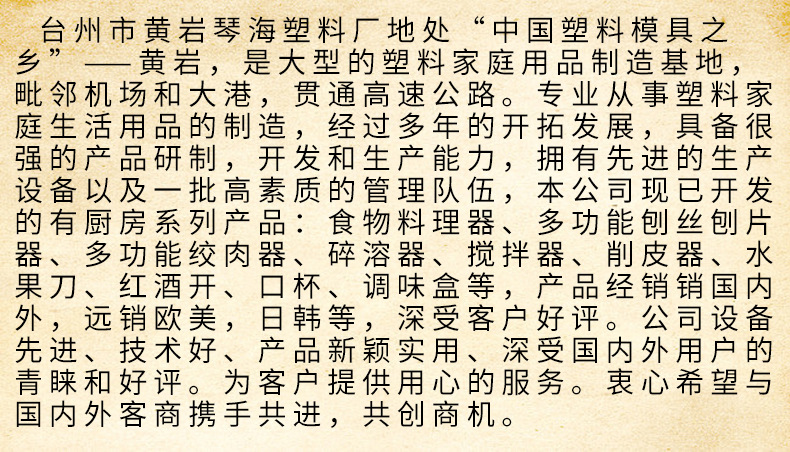 台州市黄岩琴海塑料厂地处“中国塑料模具之
乡”——黄岩，是大型的塑料家庭用品制造基地，
毗邻机场和大港，贯通高速公路。专业从事塑料家
庭生活用品的制造，经过多年的开拓发展，具备很
强的产品研制，开发和生产能力，拥有先进的生产
设备以及一批高素质的管理队伍，本公司现已开发
的有厨房系列产品：食物料理器、多功能刨丝刨片
器、多功能绞肉器、碎溶器、搅拌器、削皮器、水
果刀、红酒开、口杯、调味盒等，产品经销销国内
外，远销欧美，日韩等，深受客户好评。公司设备
先进、技术好、产品新颖实用、深受国内外用户的
青睐和好评。为客户提供用心的服务。衷心希望与
国内外客商携手共进，共创商机。